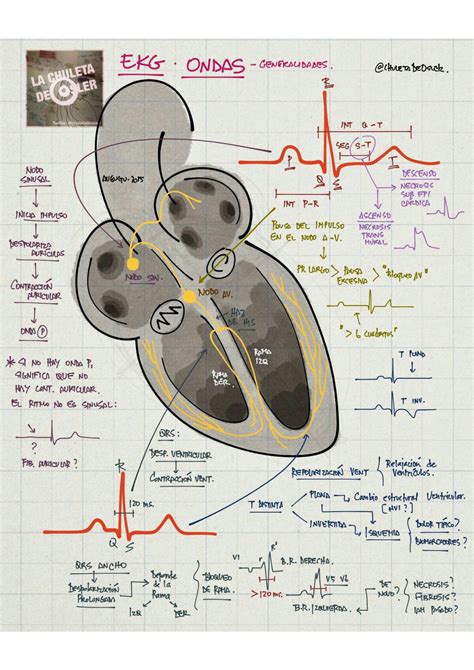 EKG · ONDAS - GENERALIDADES.
@CHULETADEOSLER
LA CHULETA
DE OSLER
R
INT Q-T
SEG S-T
P
Q
S
T
INT P-R
NODO
SINUSAL
INICIA IMPULSO
DESPOLARIZA
AURICULAS
CONTRACCIÓN
AURICULAR
ONDA P
* SI NO HAY ONDA P,
SIGNIFICA QUE NO
HAY CONT. AURICULAR.
EL RITMO NO ES SINUSAL:
?
FIB. AURICULAR?
NODO SIN.
NODO AV.
HAZ
DE HIS
RAMA
DER.
RAMA
IZQ
PAUSA DEL IMPULSO
EN EL NODO A-V.
PR LARGO > PAUSA
EXCESIVA > "BLOQUEO AV"
"> 5 CUADRITOS"
DESCENSO
NECROSIS
SUB EPI
CÁRDICA
ASCENSO
NECROSIS
TRANS
MURAL
T PLANO
T INV.
QRS:
DESP. VENTRICULAR
CONTRACCIÓN VENT.
R
120 ms.
Q
S
REPOLARIZACIÓN VENT
Relajación de
Ventrículos.
T DISTINTA
PLANA
Cambio estructural Ventricular.
(HVI?)
INVERTIDA
ISQUEMIA
DOLOR TÍPICO?
BIOMARCADORES?
QRS ANCHO
DESPOLARIZACIÓN
PROLONGADA
Depende
de la
Rama
IZQ
DER
BLOQUEO
DE RAMA
V1
r
r'
B.R. DERECHA.
>120 ms.
V5 V6
B.R. IZQUIERDA.
DE
NOVO?
NECROSIS?
FIBROSIS?
IAM PASADO?